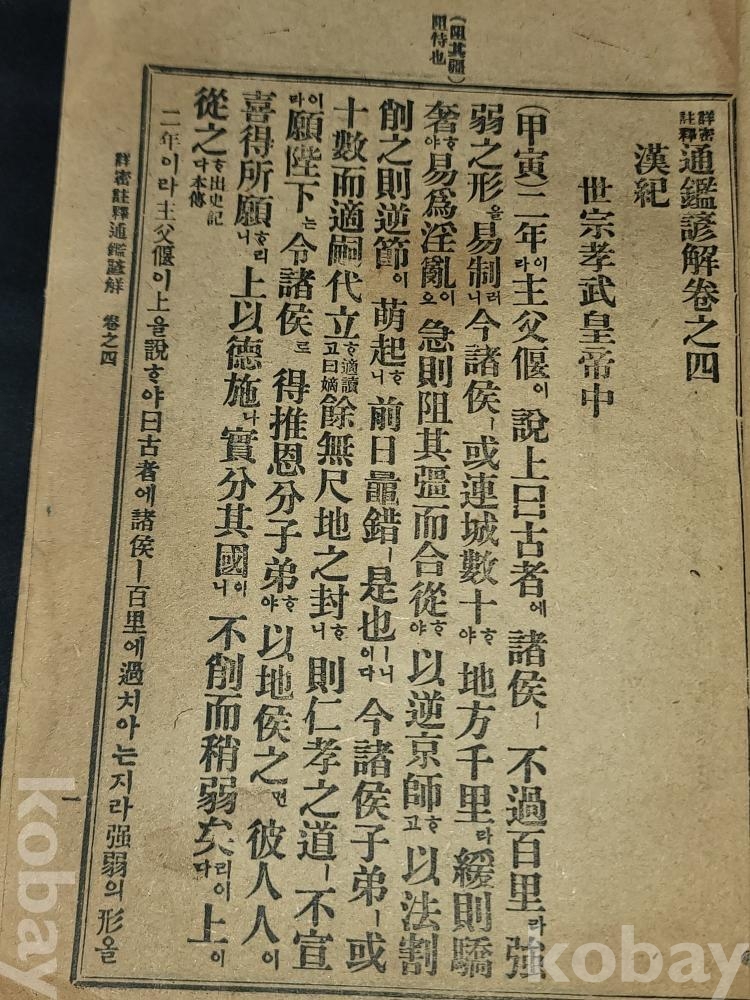 (阻其疆)
阻恃也
詳密註釋通鑑諺解卷之四
漢紀
世宗孝武皇帝中
(甲寅)二年이라主父偃이說上曰古者에諸侯ㅣ不過百里라强
弱之形을易制러니今諸侯ㅣ或連城數十ᄒᆞ야地方千里라緩則驕
奢ᄒᆞ야易爲淫亂이오急則阻其彊而合從ᄒᆞ야以逆京師ᄒᆞ고以法割
削之則逆節이萌起ᄒᆞ니前日鼂錯ㅣ是也ㅣ니이다今諸侯子弟ㅣ或
十數而適嗣代立ᄒᆞ고適讀曰嫡餘無尺地之封ᄒᆞ니則仁孝之道ㅣ不宣
이라願陛下는令諸侯로得推恩分子弟ᄒᆞ야以地侯之면彼人人이
喜得所願ᄒᆞ리니上以德施나實分其國이니不削而稍弱矣리이다上이
從之ᄒᆞ다出史記本傳
二年이라主父偃이上을說ᄒᆞ야曰古者에諸侯ㅣ百里에過치아는지라强弱의形을
詳密註釋通鑑諺解 卷之四 一
kobay
kobay